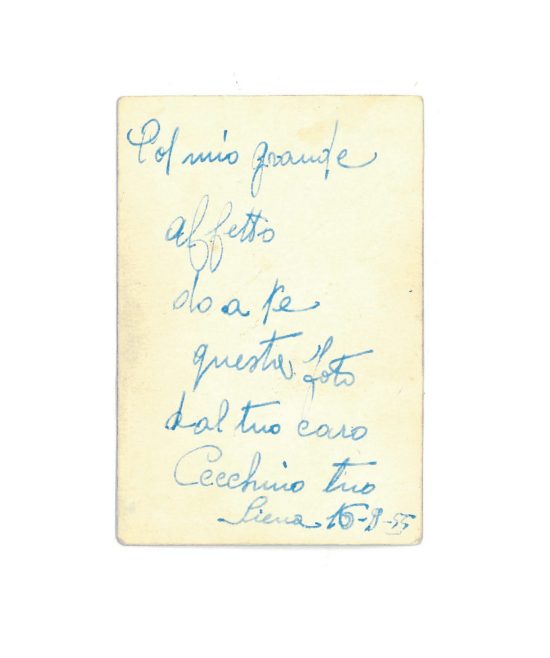 Col mio grande
affetto
do a te
questa foto
dal tuo caro
Cecchino tuo
Siena 16-8-55